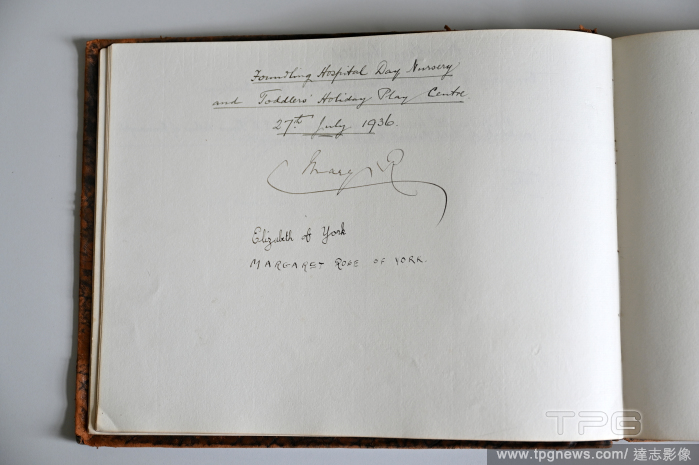 Foundling Hospital Day Nursery
and Toddlers' Holiday Play Centre
27th July 1936.
Mary R
Elizabeth of York
MARGARET ROSE OF YORK.
TPG
www.tpgnews.com/ 達志影像